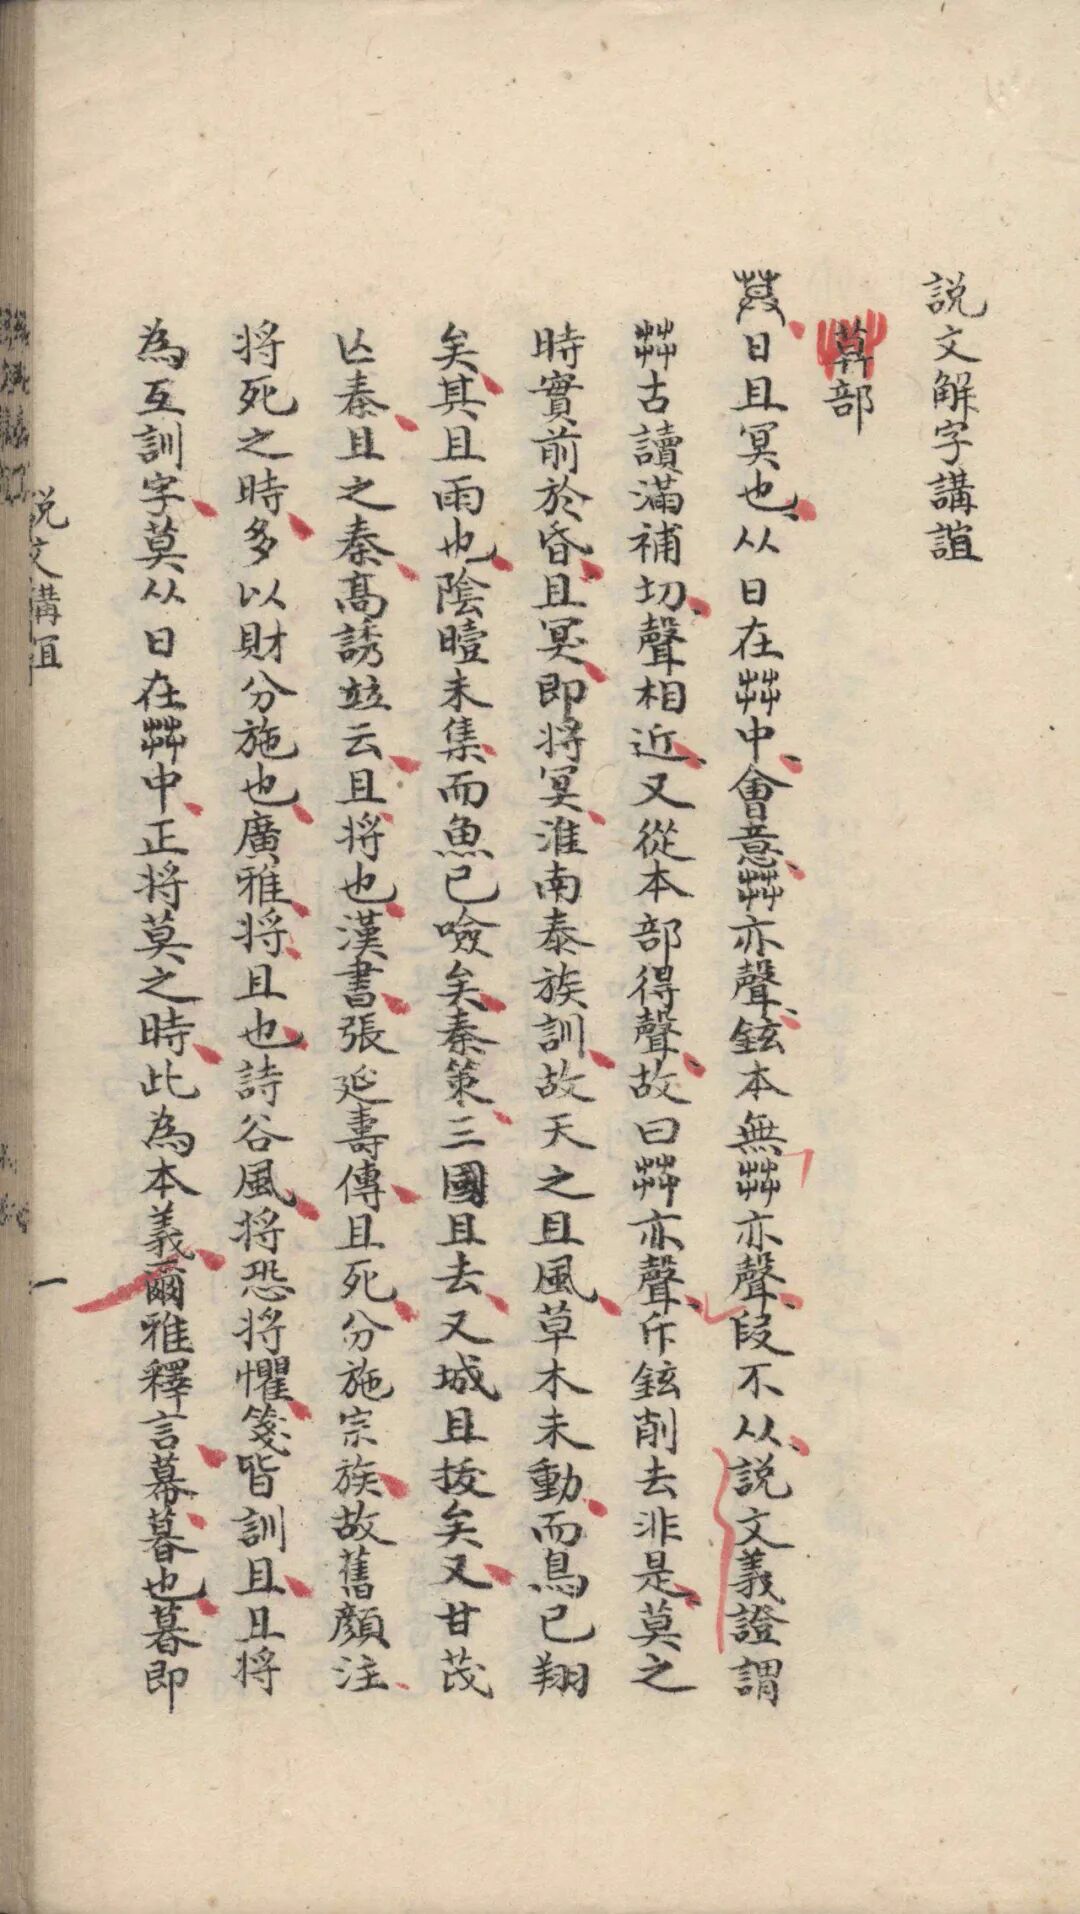 說文解字講誼
茻部
莫日且冥也从日在茻中會意茻亦聲鉉本無茻亦聲段不从說文義證謂
茻古讀滿補切聲相近又從本部得聲故曰茻亦聲斥鉉削去非是莫之
時實前於昏且冥即將冥淮南泰族訓故天之且風草木未動而鳥已翔
矣其且雨也陰曀未集而魚已噞矣秦策三國且去又城且拔矣又甘茂
亾秦且之秦高誘竝云且將也漢書張延壽傳且死分施宗族故舊顏注
將死之時多以財分施也廣雅將且也詩谷風將恐將懼箋皆訓且且將
為互訓字莫从日在茻中正將莫之時此為本義爾雅釋言幕暮也暮即
說文講誼
一